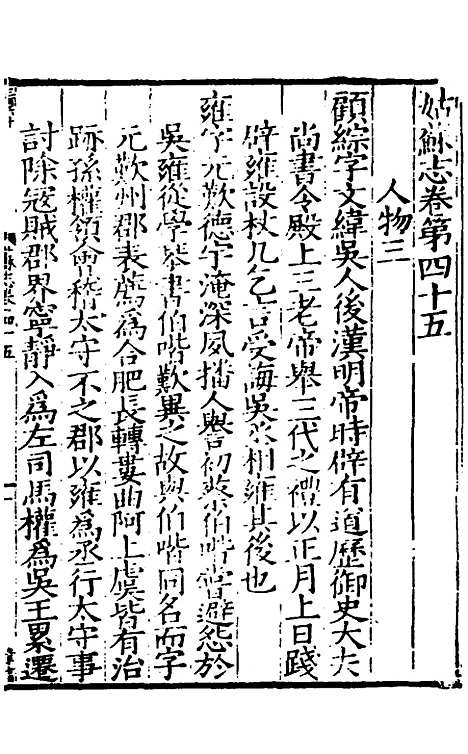 姑蘇志卷第四十五
人物三
顧綜字文緯吳人後漢明帝時辟有道歷御史大夫
尚書令殿上三老帝舉三代之禮以正月上日踐
辟雍設杖几乞言受誨吳丞相雍其後也
雍字元歎德宇淹深夙播人譽初蔡伯喈嘗避怨於
吳雍從學琴書伯喈歎異之故與伯喈同名而字
元歎州郡表薦為合肥長轉婁曲阿上虞皆有治
跡孫權領會稽太守不之郡以雍為丞行太守事
討除寇賊郡界寧靜入為左司馬權為吳王累遷